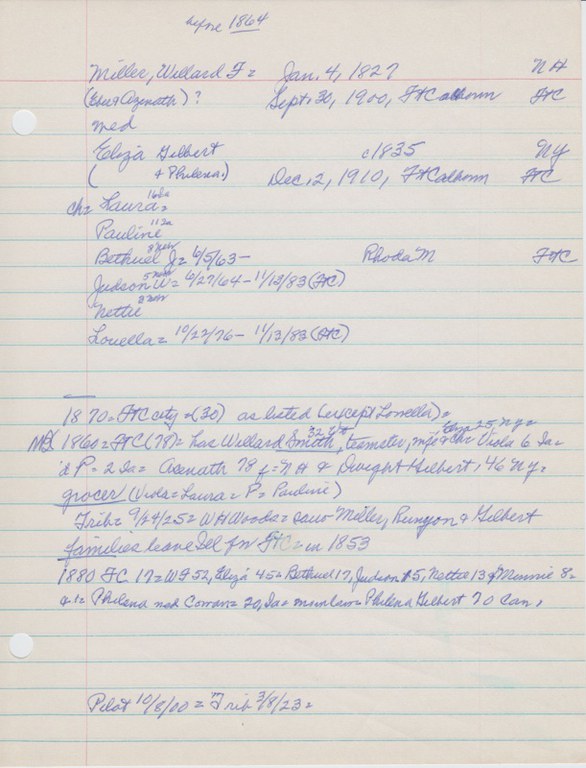 before 1864
Miller, Willard F = Jan. 4, 1827 NH
(Eber & Azenath)? Sept. 30, 1900, Ft Calhoun FtC
med
Eliza Gilbert c1835 NY
( & Philena) Dec. 2, 1910, Ft Calhoun FtC
ch = Laura = 16 Ia
Pauline 11 Ia
Bethuel J = 6/5/63 - Rhoda M FtC
8 Neb
Judson W = 6/27/64 - 11/12/83 (FtC)
5 Neb
Nettie
Louella = 10/22/76 - 11/13/83 (FtC)
1870 = FtC city = (30) as listed (except Louella) =
1860 = FtC (79) = has Willard Smith, 32 teamster, & ch = Viola 6 Ia =
& P = 2 Ia = Asenath 78 f = NH & Dwight Gilbert, 46 NY =
grocer (Viola = Laura = P = Pauline)
Trib = 9/24/25 = WH Woods = saw Miller, Runyon & Gilbert
families leave Ill for FtC = in 1853
1880 FC 17 = WF 52, Eliza 45 = Bethuel 17, Judson 15, Nettie 13 & Minnie 8 =
Philena med Cowan = 20, Ia = mominlaw = Philena Gilbert 70 Can,
Pilot 10/8/00 = Trib 3/8/23 =